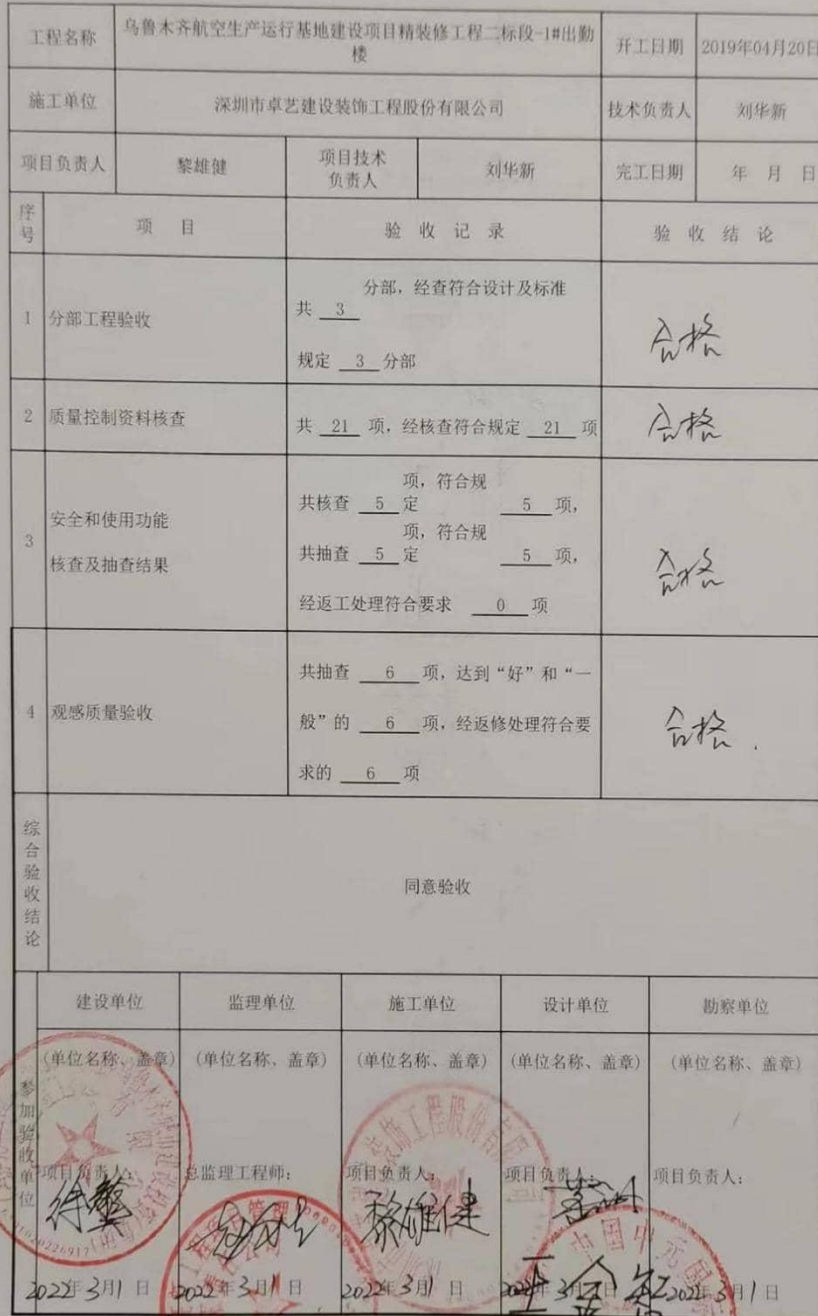 工程名称 乌鲁木齐航空生产运行基地建设项目精装修工程二标段-1#出勤
楼 开工日期 2019年04月20日
施工单位 深圳市卓艺建设装饰工程股份有限公司 技术负责人 刘华新
项目负责人 黎雄健 项目技术
负责人 刘华新 完工日期 年 月 日
序
号 项 目 验 收 记 录 验 收 结 论
1 分部工程验收
分部，经查符合设计及标准
共 3
规定 3 分部
合格
2 质量控制资料核查 共 21 项，经核查符合规定 21 项 合格
3 安全和使用功能
核查及抽查结果
项，符合规
共核查 5 定 5 项，
项，符合规
共抽查 5 定 5 项，
经返工处理符合要求 0 项
合格
4 观感质量验收
共抽查 6 项，达到“好”和“一
般”的 6 项，经返修处理符合要
求的 6 项
合格.
综合验收结论 同意验收
参加验收单位
建设单位 监理单位 施工单位 设计单位 勘察单位
(单位名称、盖章) (单位名称、盖章) (单位名称、盖章) (单位名称、盖章) (单位名称、盖章)
项目负责人: 总监理工程师: 项目负责人: 项目负责人: 项目负责人:
黎雄健
2022年3月1日 2022年3月1日 2022年3月1日 2022年3月1日 2022年3月1日